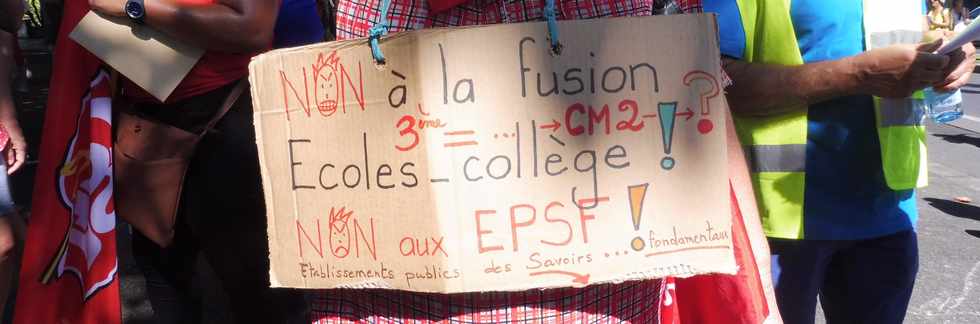 NON à la fusion
3ème = ... → CM2 - → ?
Ecoles-collège !
NON aux EPSF !
Etablissements publics des Savoirs ... fondamentaux